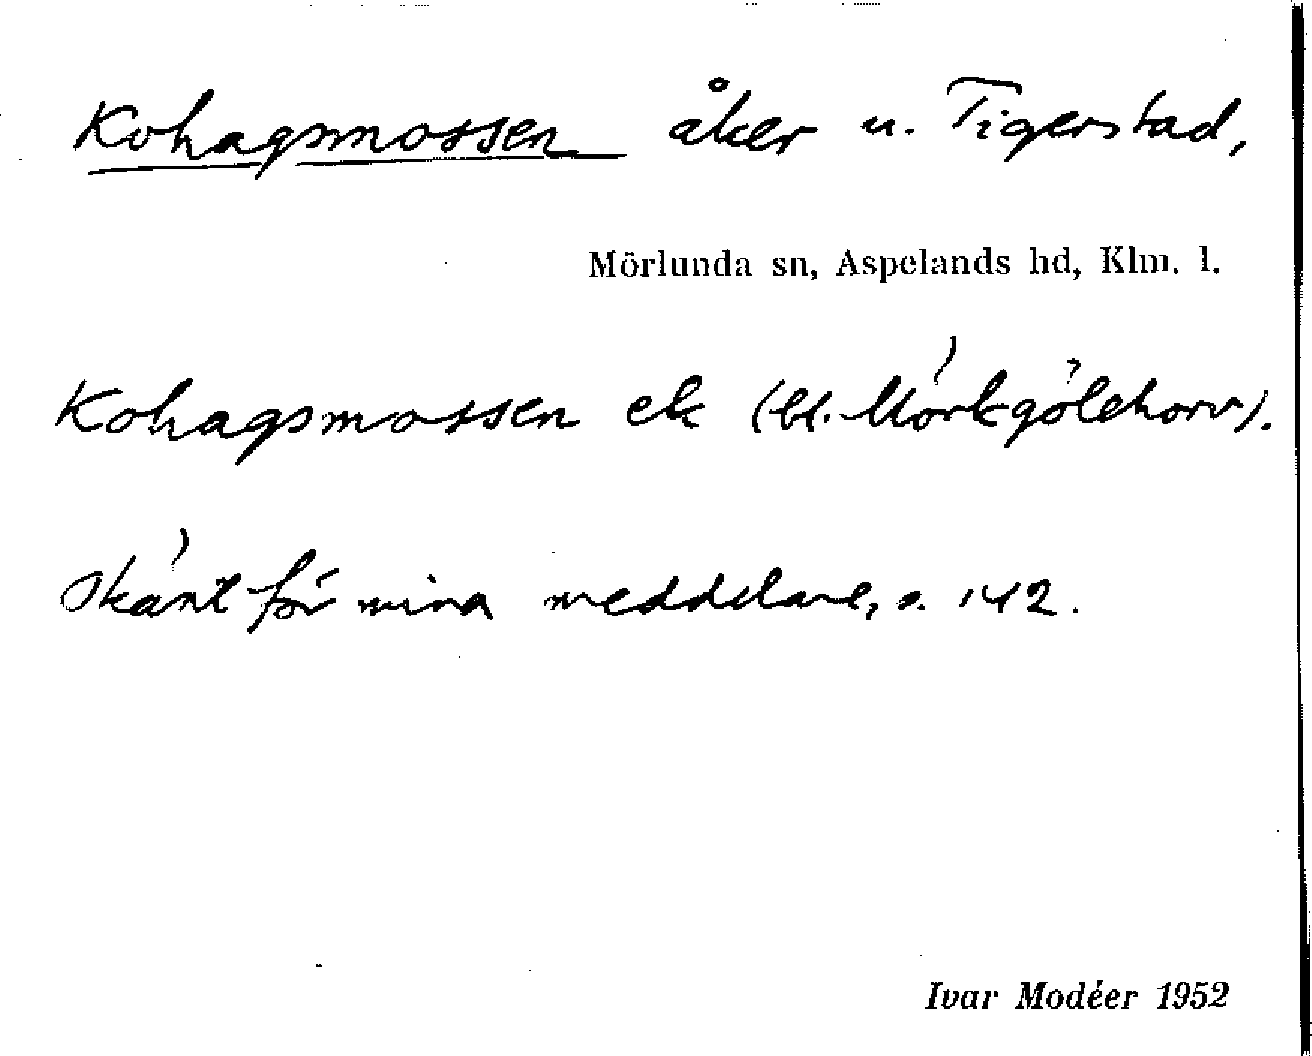 Kohagsmossen åker u. Tigerstad,
Mörlunda sn, Aspelands hd, Klm. l.
Kohagsmossen ek (bl. Mörkgölehorv).
Skänt för mina meddelare, s. 142.
Ivar Modéer 1952